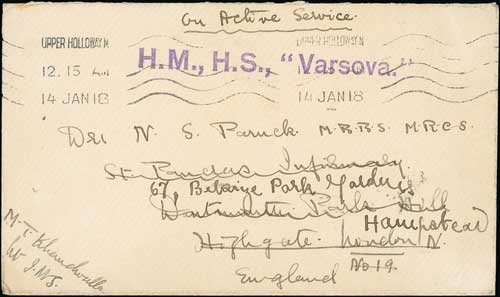 On Active Service.
UPPER HOLLOWAY N
12. 15 AM
14 JAN 18
UPPER HOLLOWAY N
14 JAN 18
H.M., H.S., "Varsova."
N. S. Paruck. M.B.B.S. M.R.C.S.
St. Pancras Infirmary.
67, Belsize Park Gardens
Dartmouth Park Hill
Hampstead
Highgate. London N.
No 19.
England